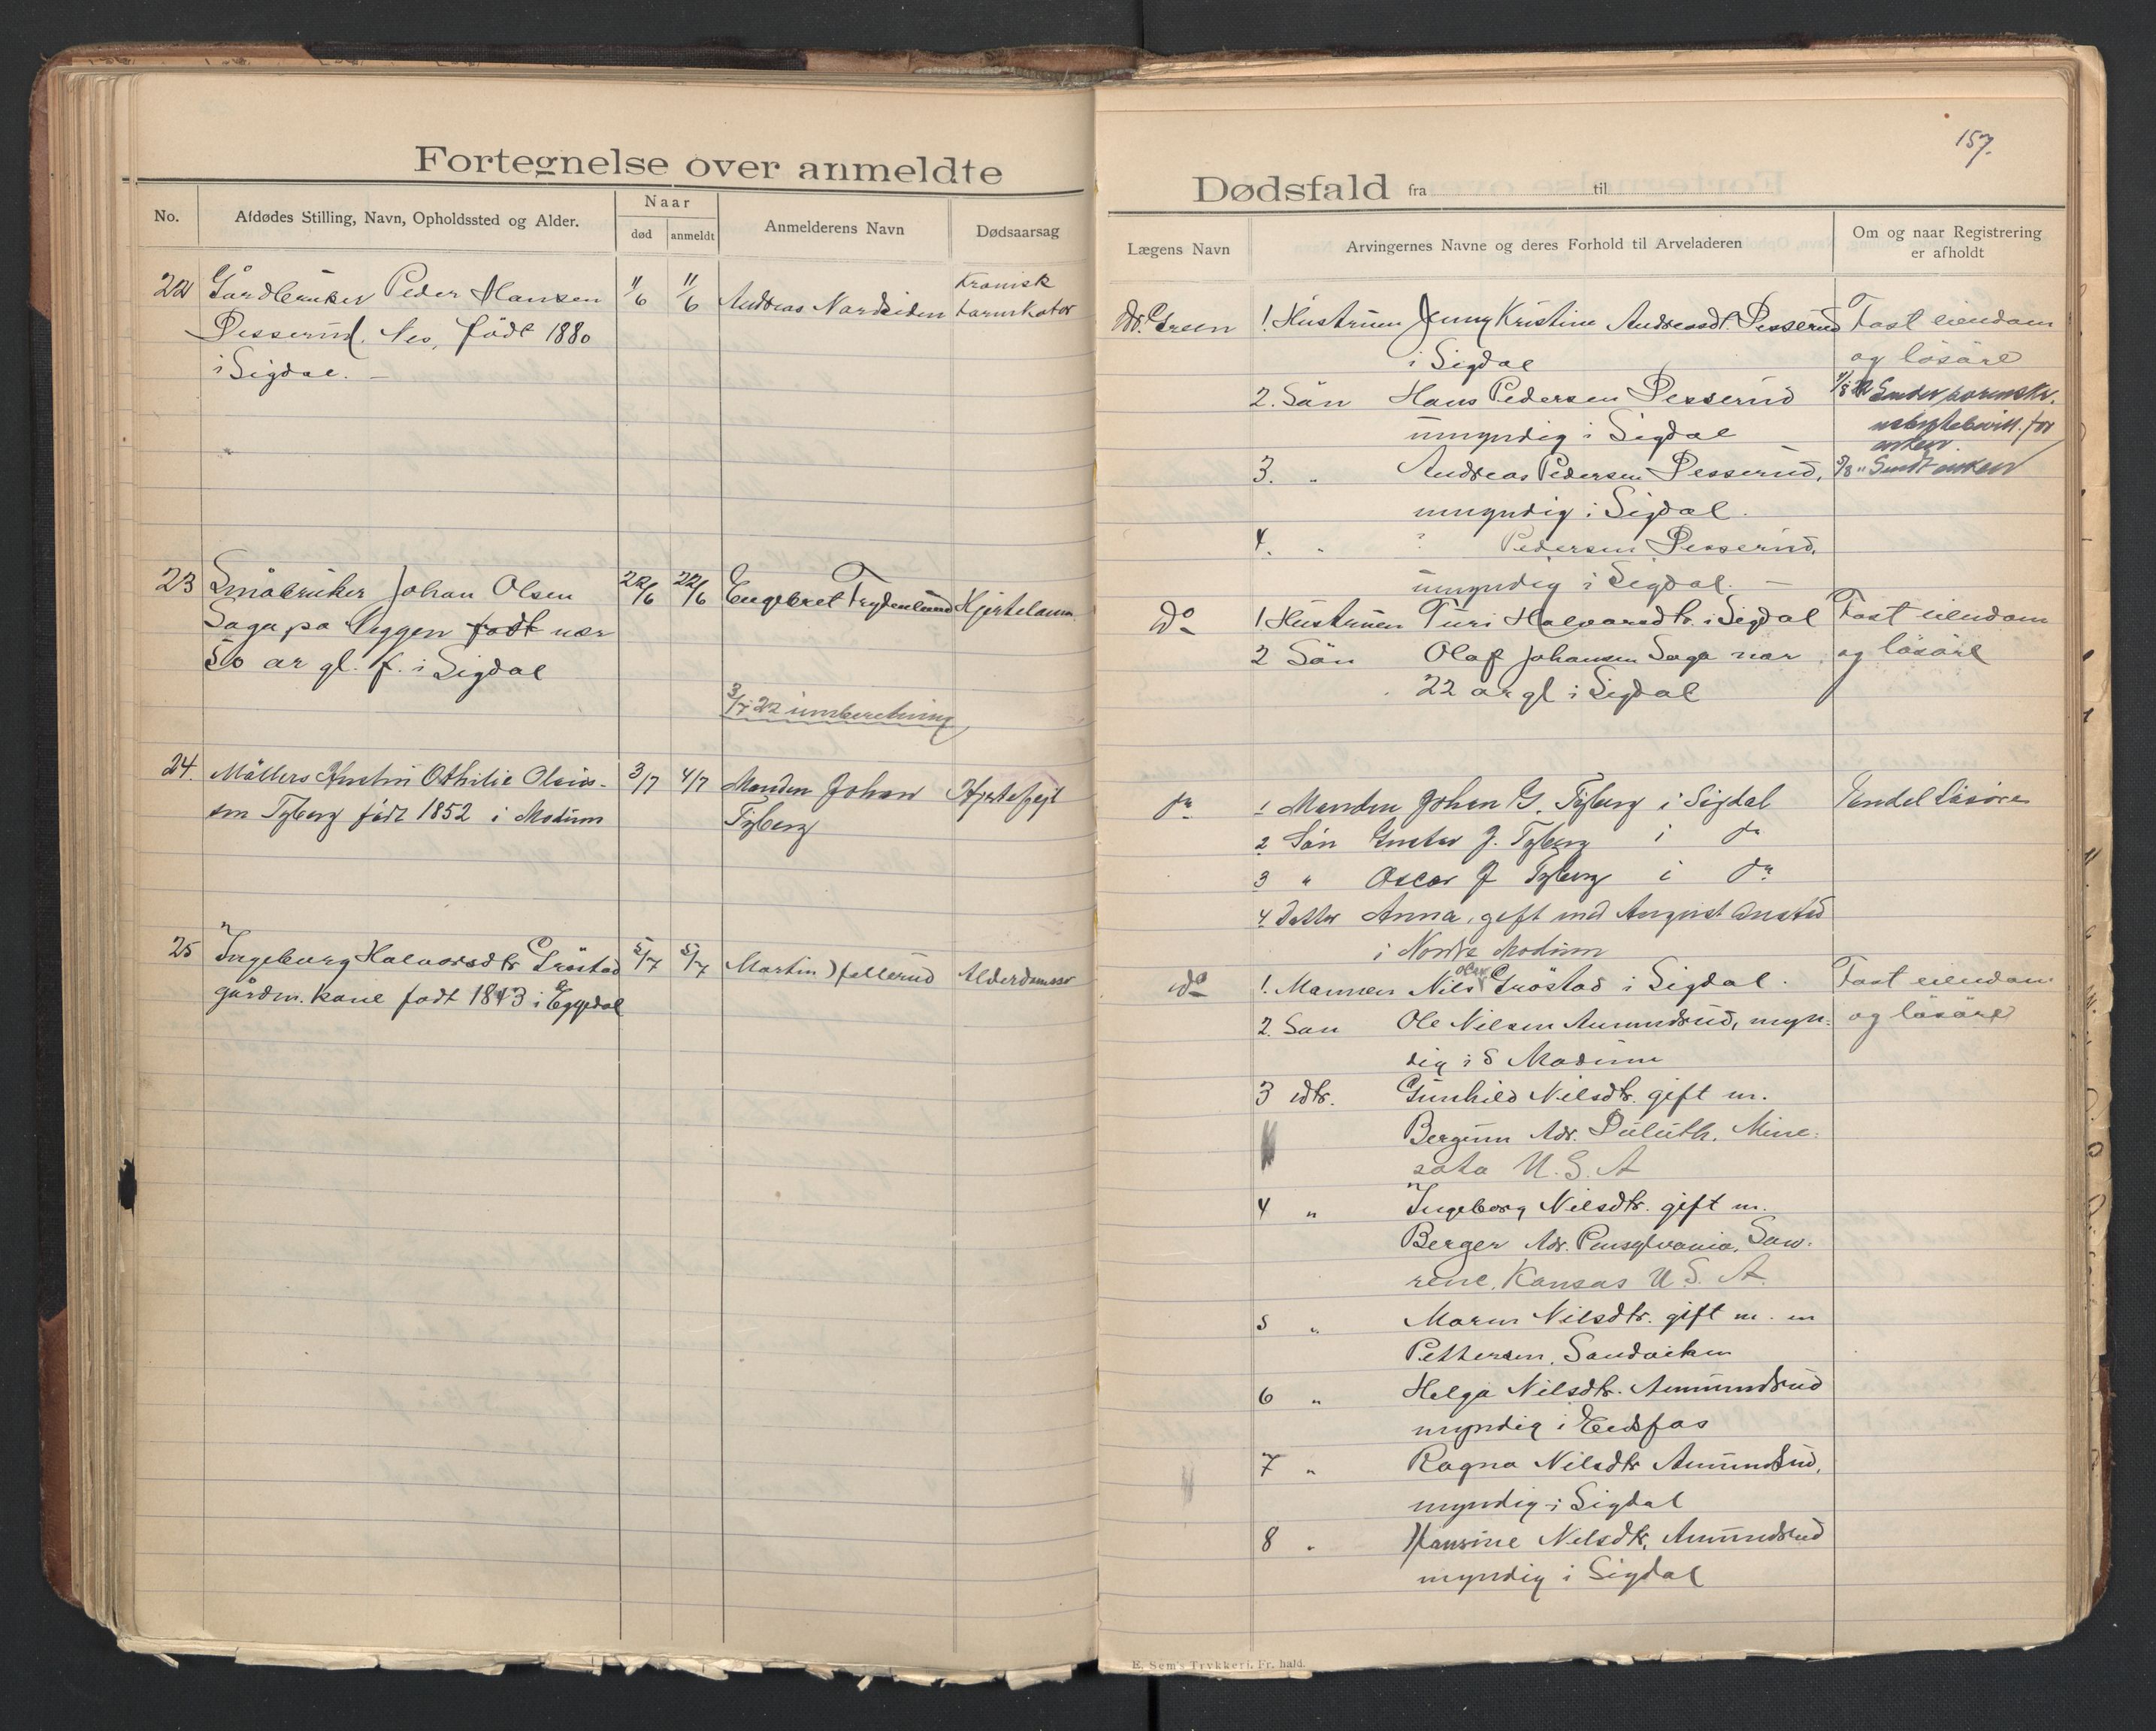 Fortegnelse over anmeldte
No.
Afdødes Stilling, Navn, Opholdssted og Alder.
Naar
død
anmeldt
Anmelderens Navn
Dødsaarsag
22 Gårdbruker Peder Hansen
Pesserud, Nes, født 1880
i Sigdal. —
11/6 11/6
Andreas Nordseiden
Kronisk
tarmkatar
23 Småbruker Johan Olsen
Saga på Veggen født nær
50 år gl. f. i Sigdal
22/6 22/6
Engebret Frydenlund
Hjertelam
3/7 22 innberetning
24. Møllers Hustru Othilie Olaius-
sen Tyberg født 1852 i Modum
3/7 4/7
Manden Johan
Tyberg
Hjertefejl
25 Ingeborg Halvorsdtr Grøstad
gårdm. kone født 1843 i Eggedal
5/7 5/7
Martin Hellerud
Alderdomssv
157.
Dødsfald fra til
Lægens Navn
Arvingernes Navne og deres Forhold til Arveladeren
Om og naar Registrering
er afholdt
Dr. Green
1. Hustruen Jenny Kristine Andreasdt. Pesserud
i Sigdal
2. Søn Hans Pedersen Pesserud
umyndig i Sigdal
3. " Andreas Pedersen Pesserud,
umyndig i Sigdal.
4. " ? Pedersen Pesserud,
umyndig i Sigdal. —
Fast eiendom
og løsøre
1/8 22 Sender sorenskr.
uskiftebevill. for
enken
3/8 " Sendt enken
do
1 Hustruen Turi Halvorsdtr. i Sigdal
2 Søn Olaf Johansen Saga nær
22 år gl i Sigdal
Fast eiendom
og løsøre
do
1 Manden Johan G. Tyberg i Sigdal
2 Søn Gustav J. Tyberg i do
3 " Oscar J Tyberg i do
4 Datter Anna, gift med August Anstad
i Nordre Modum
Endel Løsøre
do
1. Mannen Nils Olsen Grøstad i Sigdal.
2. Søn Ole Nilsen Amundsrud, myn-
dig i S Modum
3 dtr. Gunhild Nilsdtr. gift m.
Bergum Adr. Duluth. Mine-
sota U. S. A
4 " Ingeborg Nilsdtr. gift m.
Berger Adr. Pensylvania, Saw-
rene, Kansas U. S. A.
5 " Maren Nilsdtr. gift m. en
Pettersen, Sandviken
6 " Helga Nilsdtr. Amundsrud
myndig i Eidsfos
7 " Ragna Nilsdtr Amundsrud,
myndig i Sigdal
8 " Hansine Nilsdtr. Amundsrud
myndig i Sigdal
Fast eiendom
og løsøre
E. Sem's Trykkeri, Fr. hald.